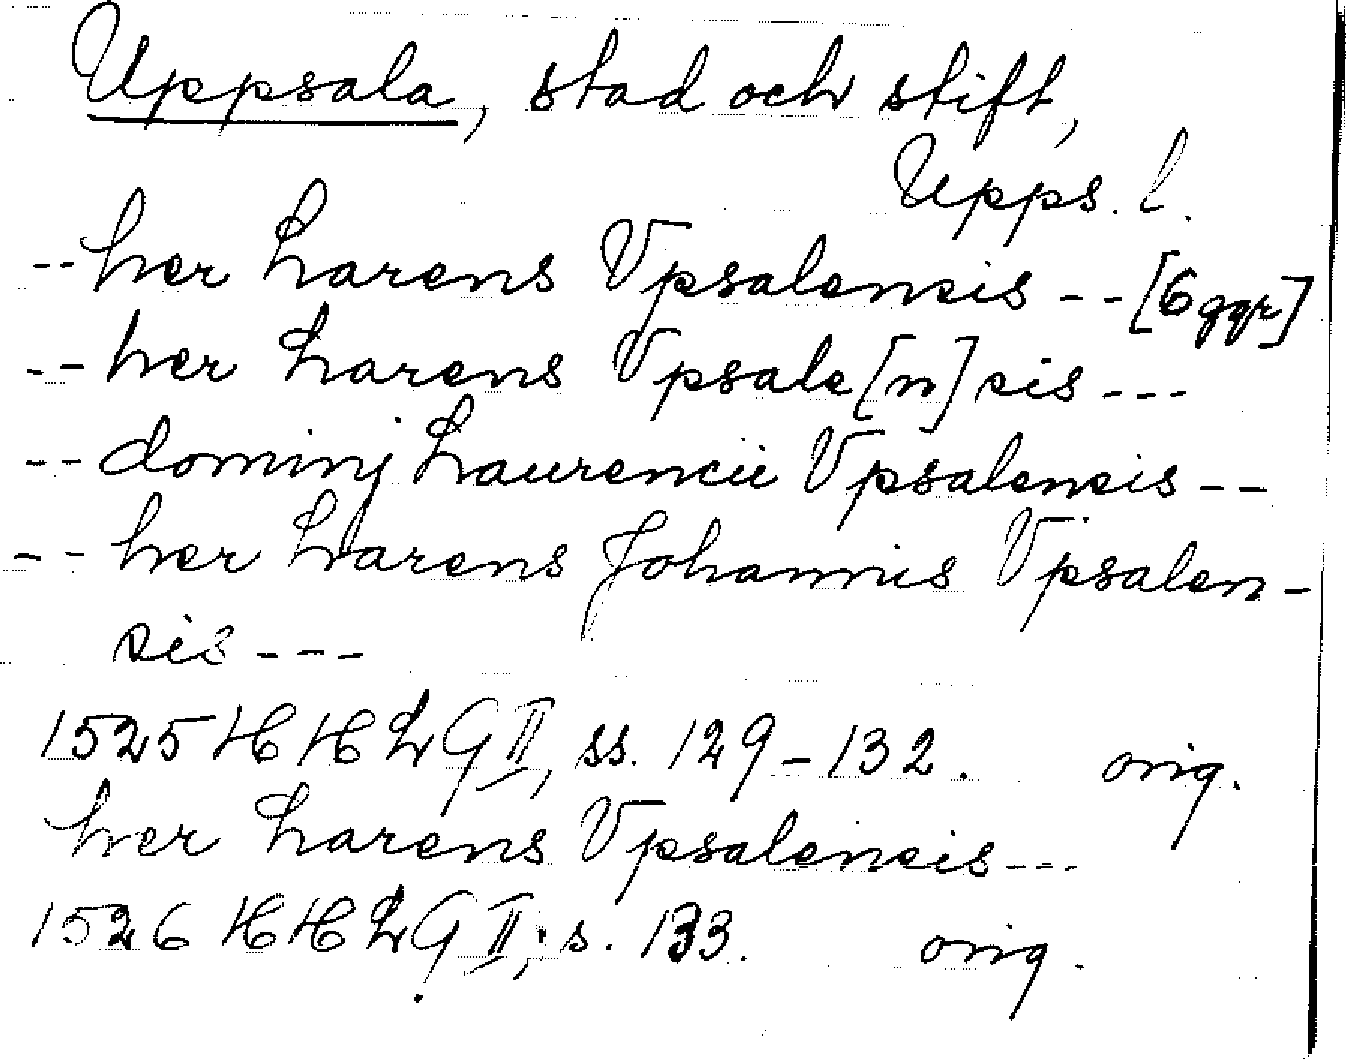 Uppsala, stad och stift,
Upps. l.
-- her Larens Vpsalensis -- [6 ggr]
-- her Larens Vpsale[n]sis ---
-- dominj Laurencii Vpsalensis --
-- her Larens Johannis Vpsalen-
sis ---
1525 HHLG II, ss. 129-132. orig.
her Larens Vpsalensis ---
1526 HHLG II, s. 133. orig.